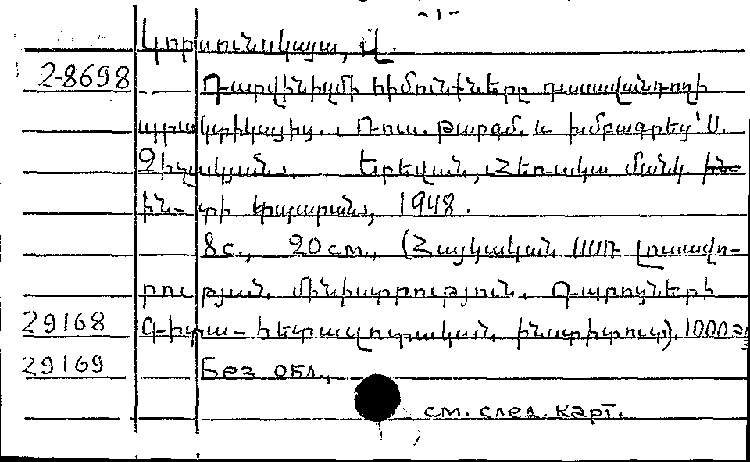 - 1 -
Կորսունսկայա, Վ.
2-8698 Դարվինիզմի հիմունքները դասավանդողի
պրակտիկայից. Ռուս. թարգմ. և խմբագրեց՝ Ս.
Զիլֆյան. Երեվան, Հեռակա մանկ ին-
ին-տի հրատ., 1948.
8с., 20см., (Հայկական ՍՍՌ Լուսավո-
րության մինիստրություն. Դպրոցների
29168 Գիտա-հետազոտական ինստիտուտ). 1000 էկз
29169 Без обл.,
см. след. карт.